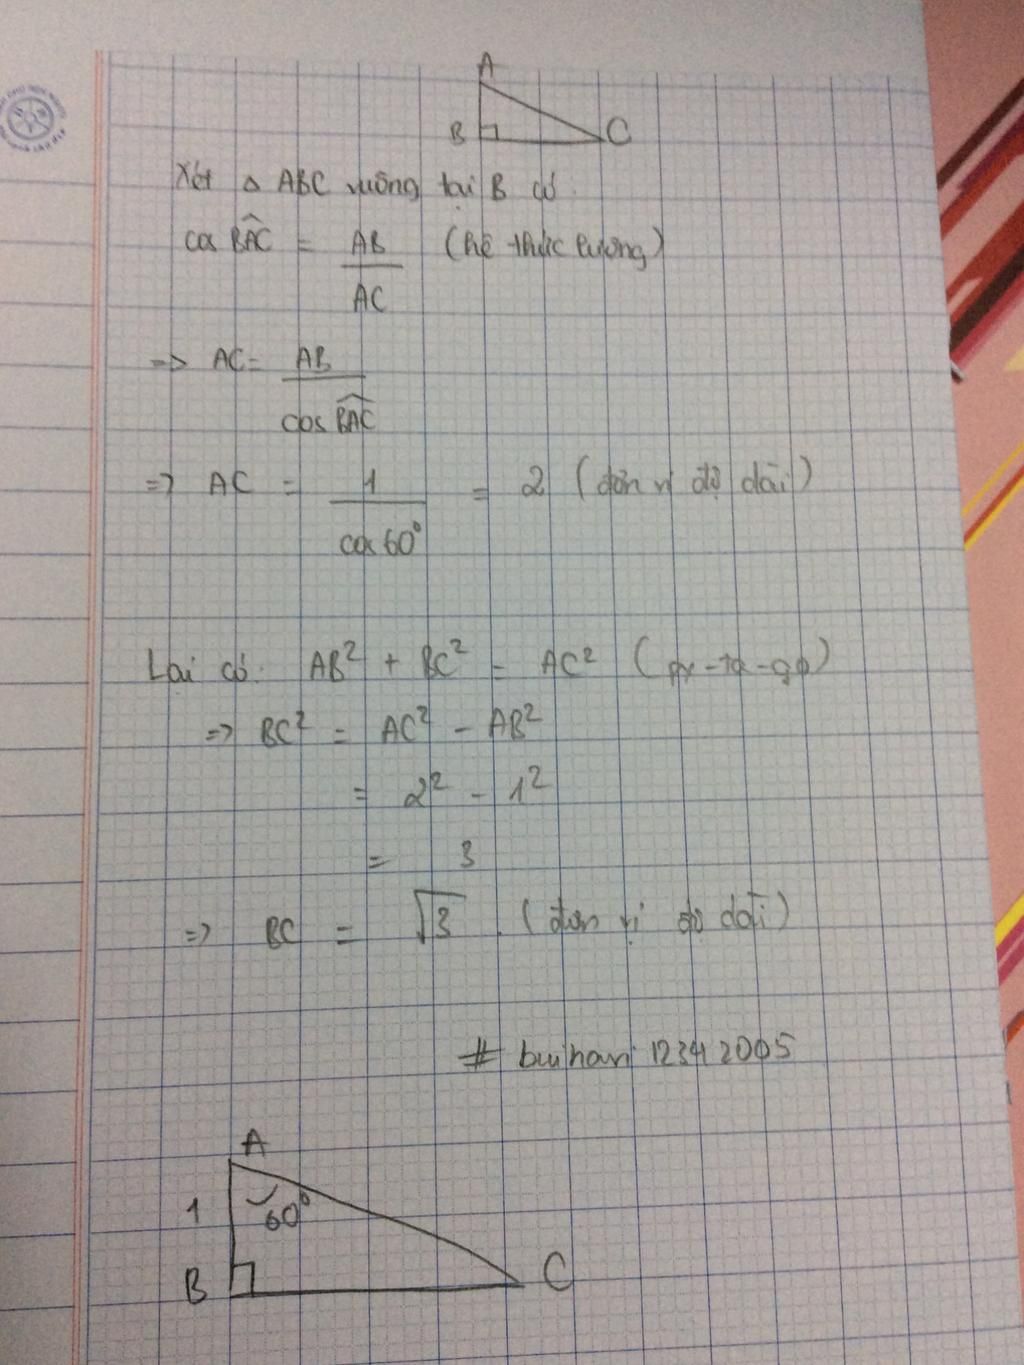 A
B C
Xét Δ ABC vuông tại B có
cos BAC = AB / AC (hệ thức lượng)
=> AC = AB / cos BAC
=> AC = 1 / cos 60° = 2 (đơn vị độ dài)
Lại có: AB² + BC² = AC² (py-ta-go)
=> BC² = AC² - AB²
= 2² - 1²
= 3
=> BC = √3 . (đơn vị độ dài)
# buihan 12342005
A
1 60°
B C